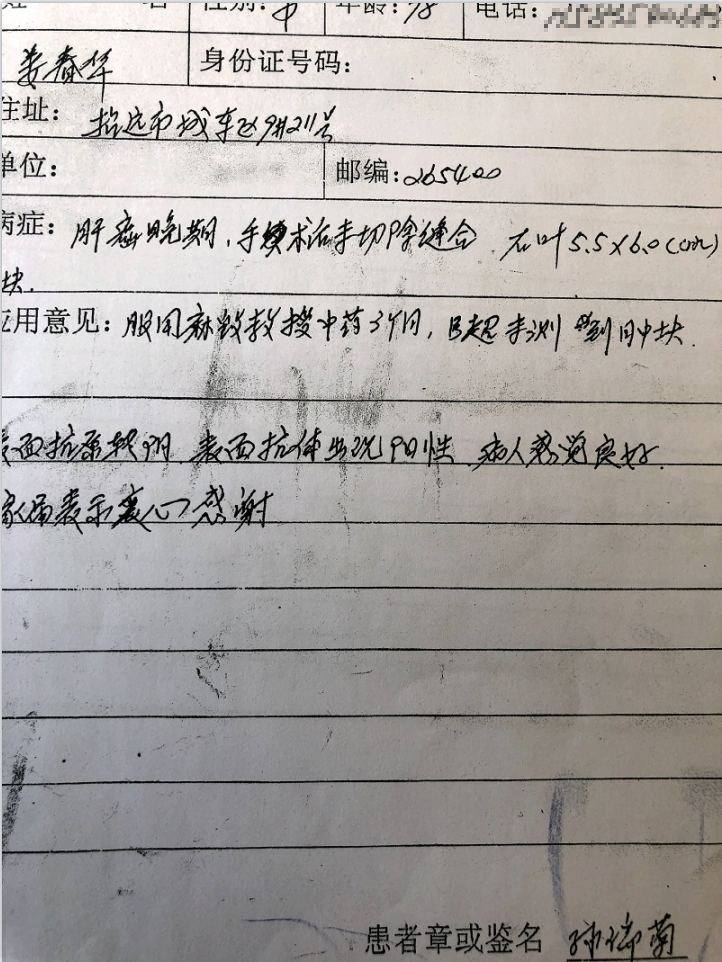 姓 名 性别: 年龄: 78 电话:
姜春华 身份证号码:
住址: 招远市城东区9#211号
单位: 邮编:265400
病症: 肝癌晚期,手术后未切除缝合 右叶5.5×6.0(cm)
块.
应用意见: 服用麻教授中药3个月,B超未测到肿块.
表面抗原转阴 表面抗体出现阳性 病人感觉良好.
家属表示衷心感谢
患者章或鉴名